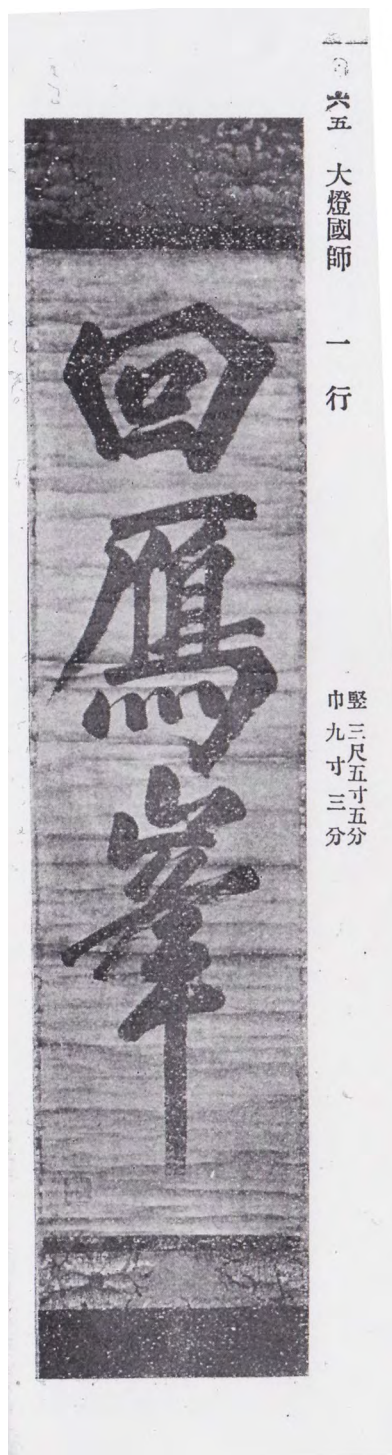 六五 大燈國師 一行
竪 三尺五寸五分
巾 九寸三分
回鴈峯